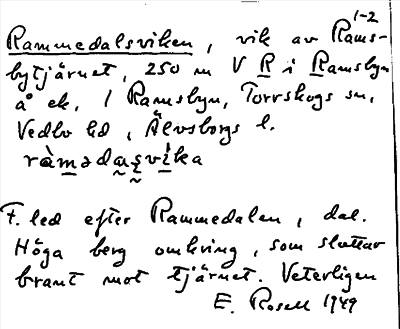 1-2
Rammedalsviken, vik av Rams-
bytjärnet, 250 m V R i Ramsbyn
å ek, / Ramsbyn, Torrskogs sn,
Vedbo hd, Älvsborgs l.
ràmədas̰vika
F. led efter Rammedalen, dal.
Höga berg omkring, som sluttar
brant mot tjärnet. Veterligen
E. Rosell 1949